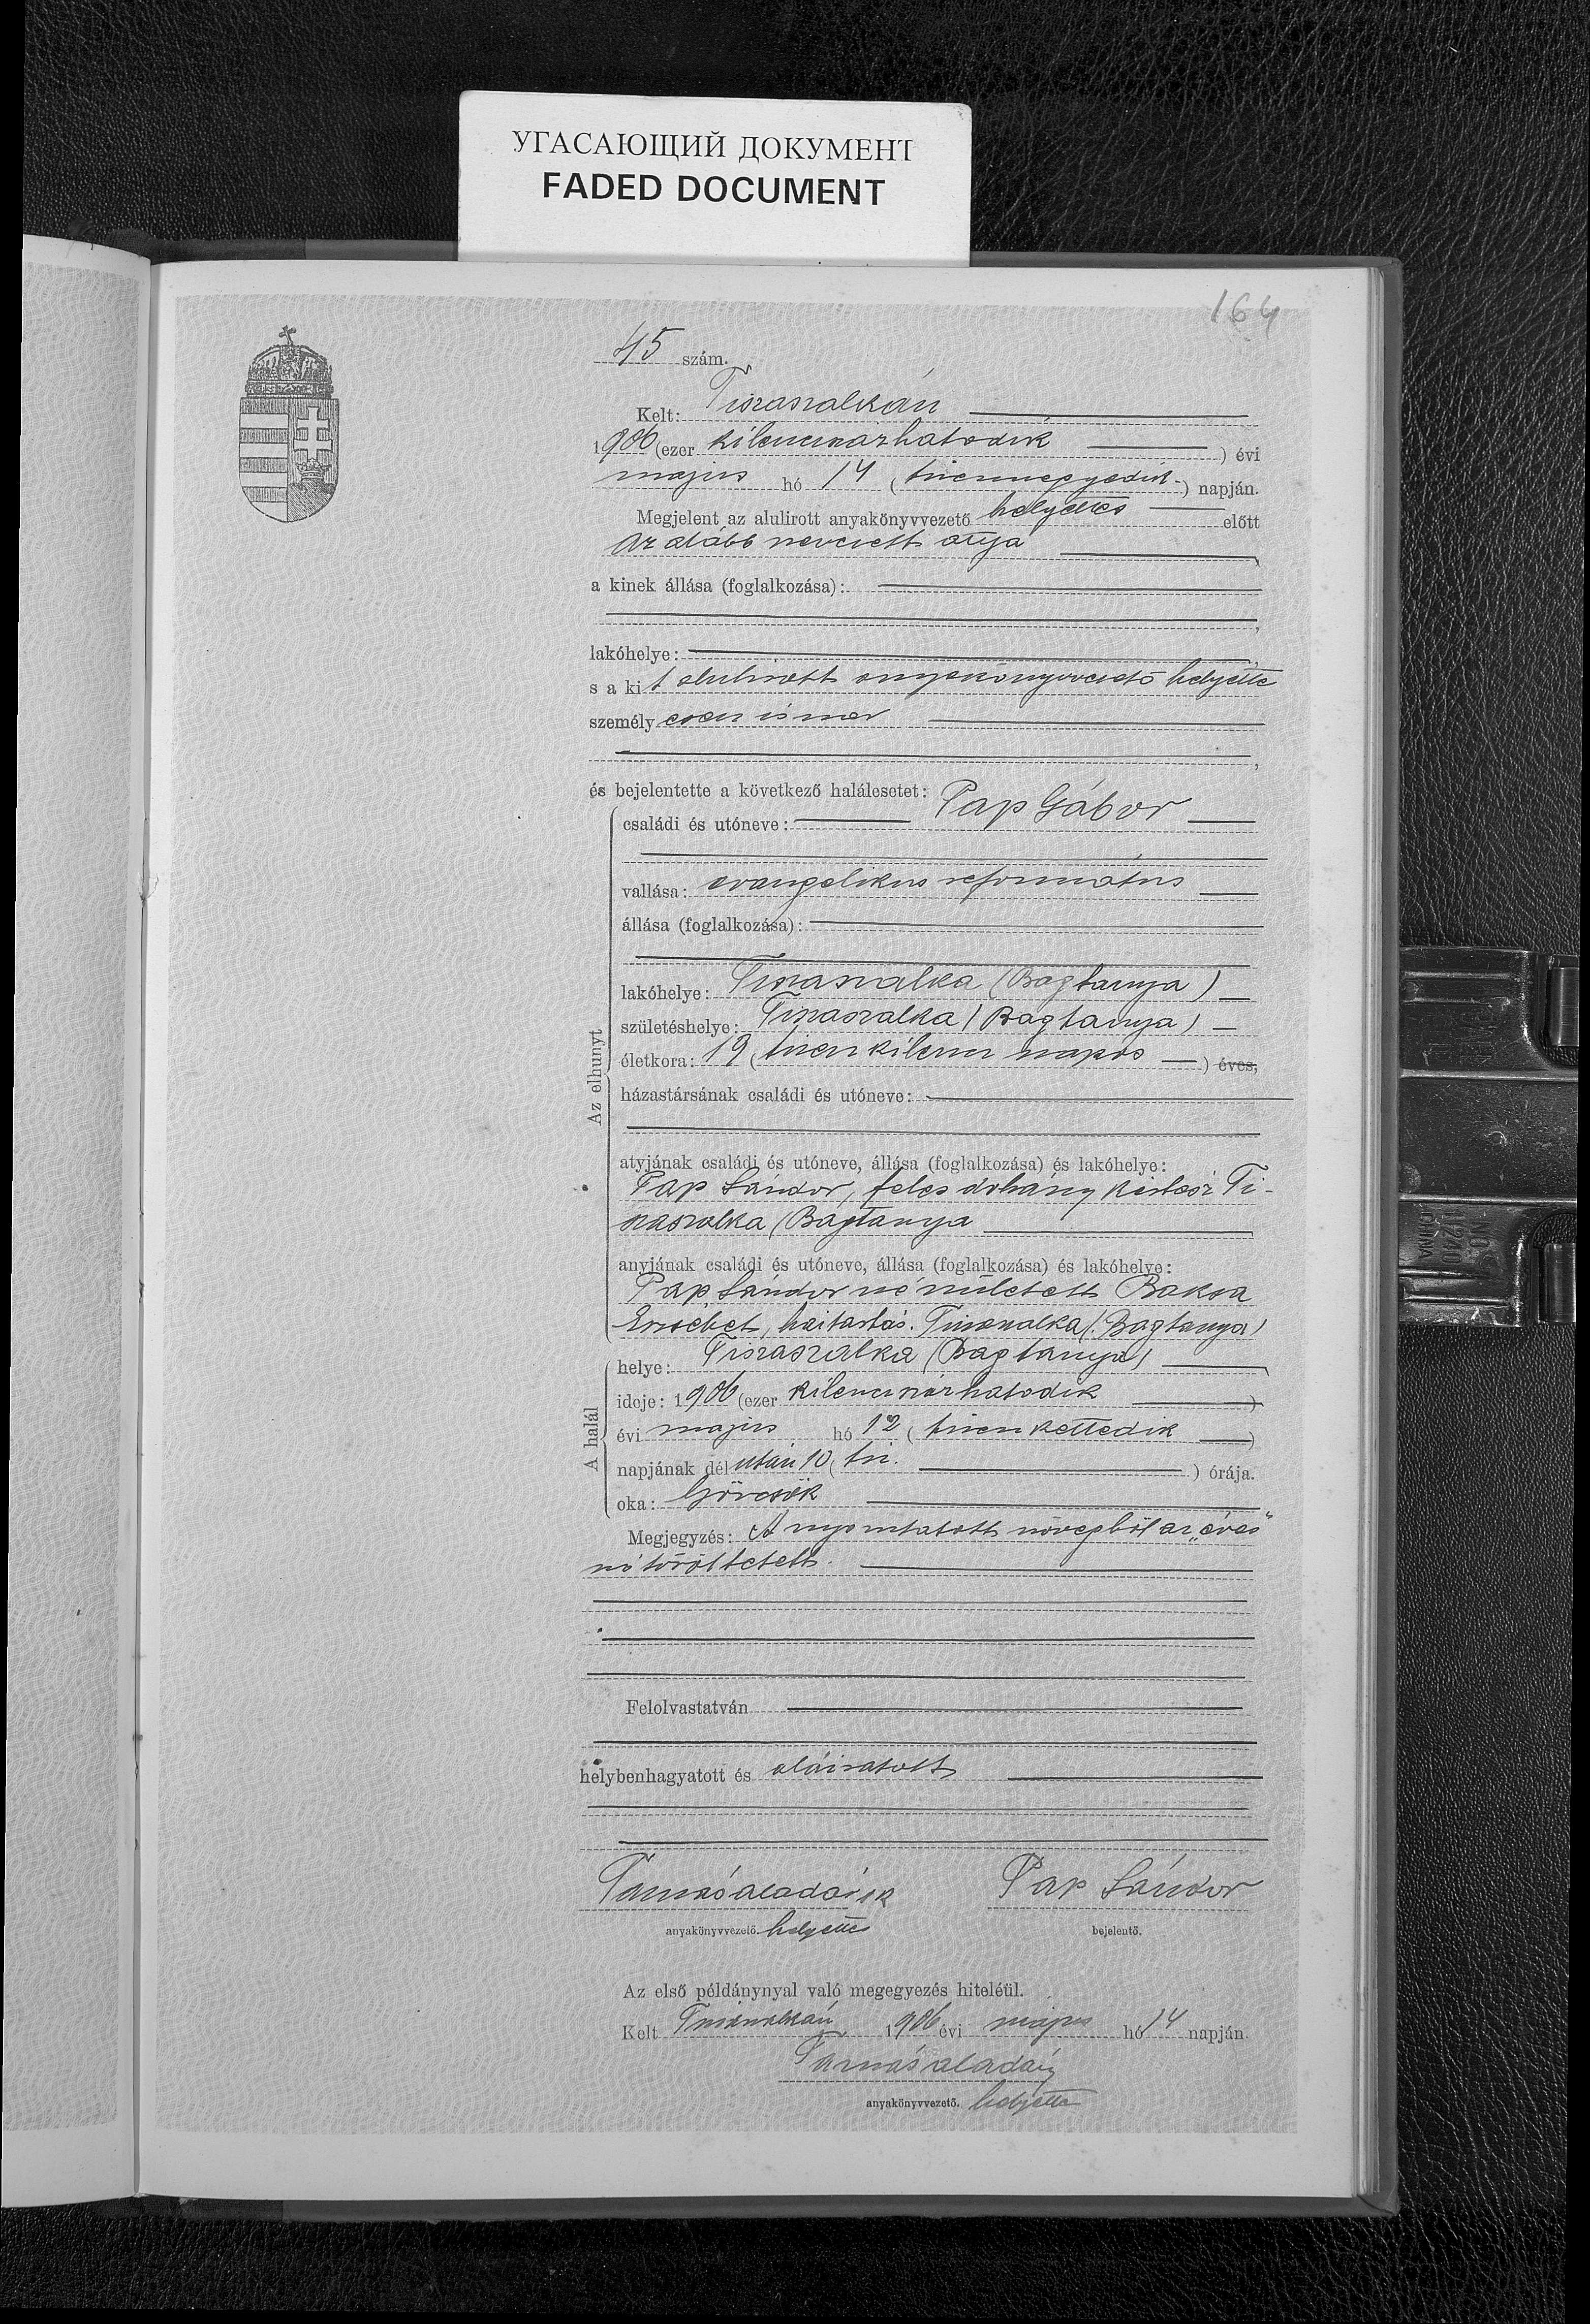 УГАСАЮЩИЙ ДОКУМЕНТ
FADED DOCUMENT
164
45 szám.
Kelt: Tiszaszalkán
1906 (ezer kilencszázhatodik ) évi
május hó 14 (tizennegyedik) napján.
Megjelent az alulirott anyakönyvvezető helyettes előtt
Az alább nevezett atyja
a kinek állása (foglalkozása):
lakóhelye:
s a ki t alulirott anyakönyvvezető helyettes
személyesen ismer
és bejelentette a következő halálesetet:
Az elhunyt
családi és utóneve: Pap Gábor
vallása: evangelikus református
állása (foglalkozása):
lakóhelye: Tiszaszalka (Bagtanya)
születéshelye: Tiszaszalka (Bagtanya)
életkora: 19 (tizenkilenc napos ) éves,
házastársának családi és utóneve:
atyjának családi és utóneve, állása (foglalkozása) és lakóhelye:
Pap Sándor, feles dohány kertész Ti-
szaszalka (Bagtanya
anyjának családi és utóneve, állása (foglalkozása) és lakóhelye:
Pap Sándor né született Baksa
Erzsébet, háztartás. Tiszaszalka (Bagtanya)
A halál
helye: Tiszaszalka (Bagtanya)
ideje: 1906 (ezer kilencszázhatodik )
évi május hó 12 (tizenkettedik )
napjának dél után 10 (tiz. ) órája.
oka: Görcsök
Megjegyzés: A nyomtatott szövegből az „éves"
szó töröltetett.
Felolvastatván
helybenhagyatott és aláiratott
Tamás Aladár Pap Sándor
anyakönyvvezető. helyettes bejelentő.
Az első példánynyal való megegyezés hiteléül.
Kelt Tiszaszalkán 1906 évi május hó 14 napján.
Tamás Aladár
anyakönyvvezető. helyettes